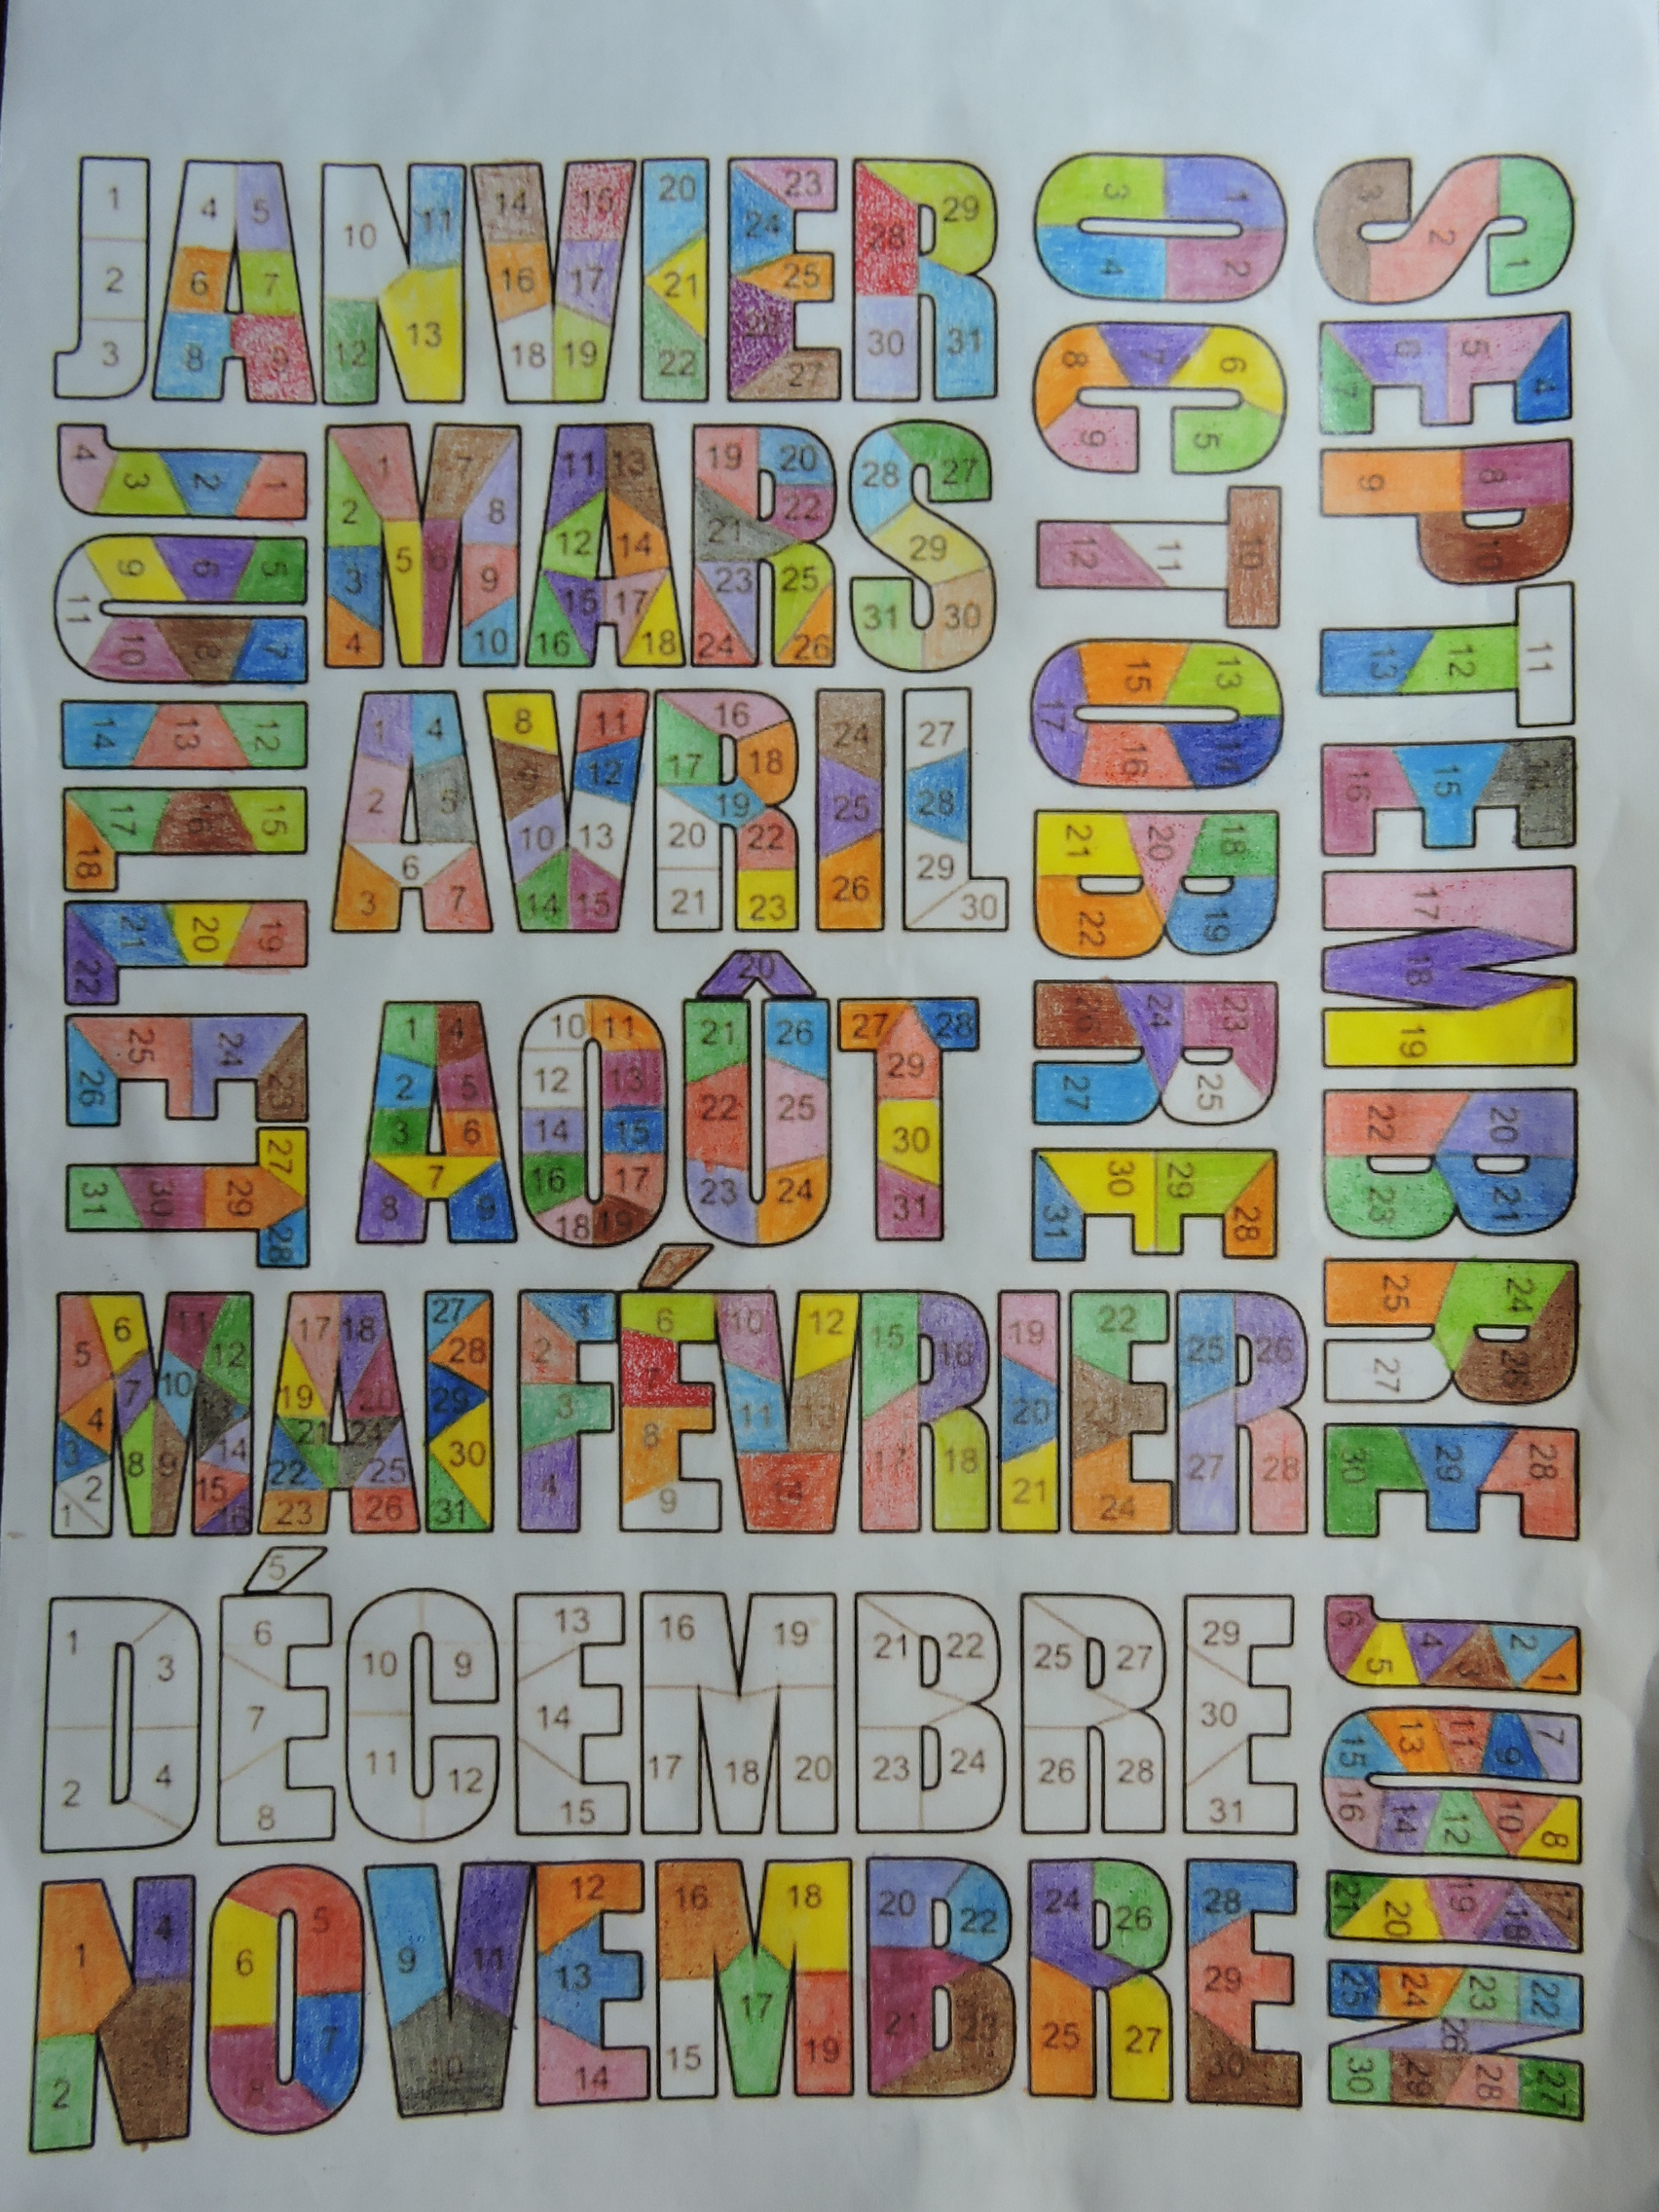 JANVIER
1 2 3 4 5 6 7 8 9 10 11 12 13 14 15 16 17 18 19 20 21 22 23 24 25 26 27 28 29 30 31
JUILLET
1 2 3 4 5 6 7 8 9 10 11 12 13 14 15 16 17 18 19 20 21 22 23 24 25 26 27 28 29 30 31
MARS
1 2 3 4 5 6 7 8 9 10 11 12 13 14 15 16 17 18 19 20 21 22 23 24 25 26 27 28 29 30 31
AVRIL
1 2 3 4 5 6 7 8 9 10 11 12 13 14 15 16 17 18 19 20 21 22 23 24 25 26 27 28 29 30
AOÛT
1 2 3 4 5 6 7 8 9 10 11 12 13 14 15 16 17 18 19 20 21 22 23 24 25 26 27 28 29 30 31
OCTOBRE
1 2 3 4 5 6 7 8 9 10 11 12 13 14 15 16 17 18 19 20 21 22 23 24 25 26 27 28 29 30 31
SEPTEMBRE
1 2 3 4 5 6 7 8 9 10 11 12 13 14 15 16 17 18 19 20 21 22 23 24 25 26 27 28 29 30
MAI
1 2 3 4 5 6 7 8 9 10 11 12 13 14 15 16 17 18 19 20 21 22 23 24 25 26 27 28 29 30 31
FÉVRIER
1 2 3 4 6 7 8 9 10 11 12 13 14 15 16 17 18 19 20 21 22 23 24 25 26 27 28
DÉCEMBRE
1 2 3 4 5 6 7 8 9 10 11 12 13 14 15 16 17 18 19 20 21 22 23 24 25 26 27 28 29 30 31
JUIN
1 2 3 4 5 6 7 8 9 10 11 12 13 14 15 16 17 18 19 20 21 22 23 24 25 26 27 28 29 30
NOVEMBRE
1 2 4 5 6 7 8 9 10 11 12 13 14 15 16 17 18 19 20 21 22 23 24 25 26 27 28 29 30